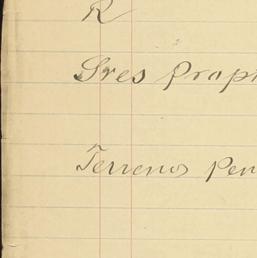 R
Sres prop
Terrenos pen